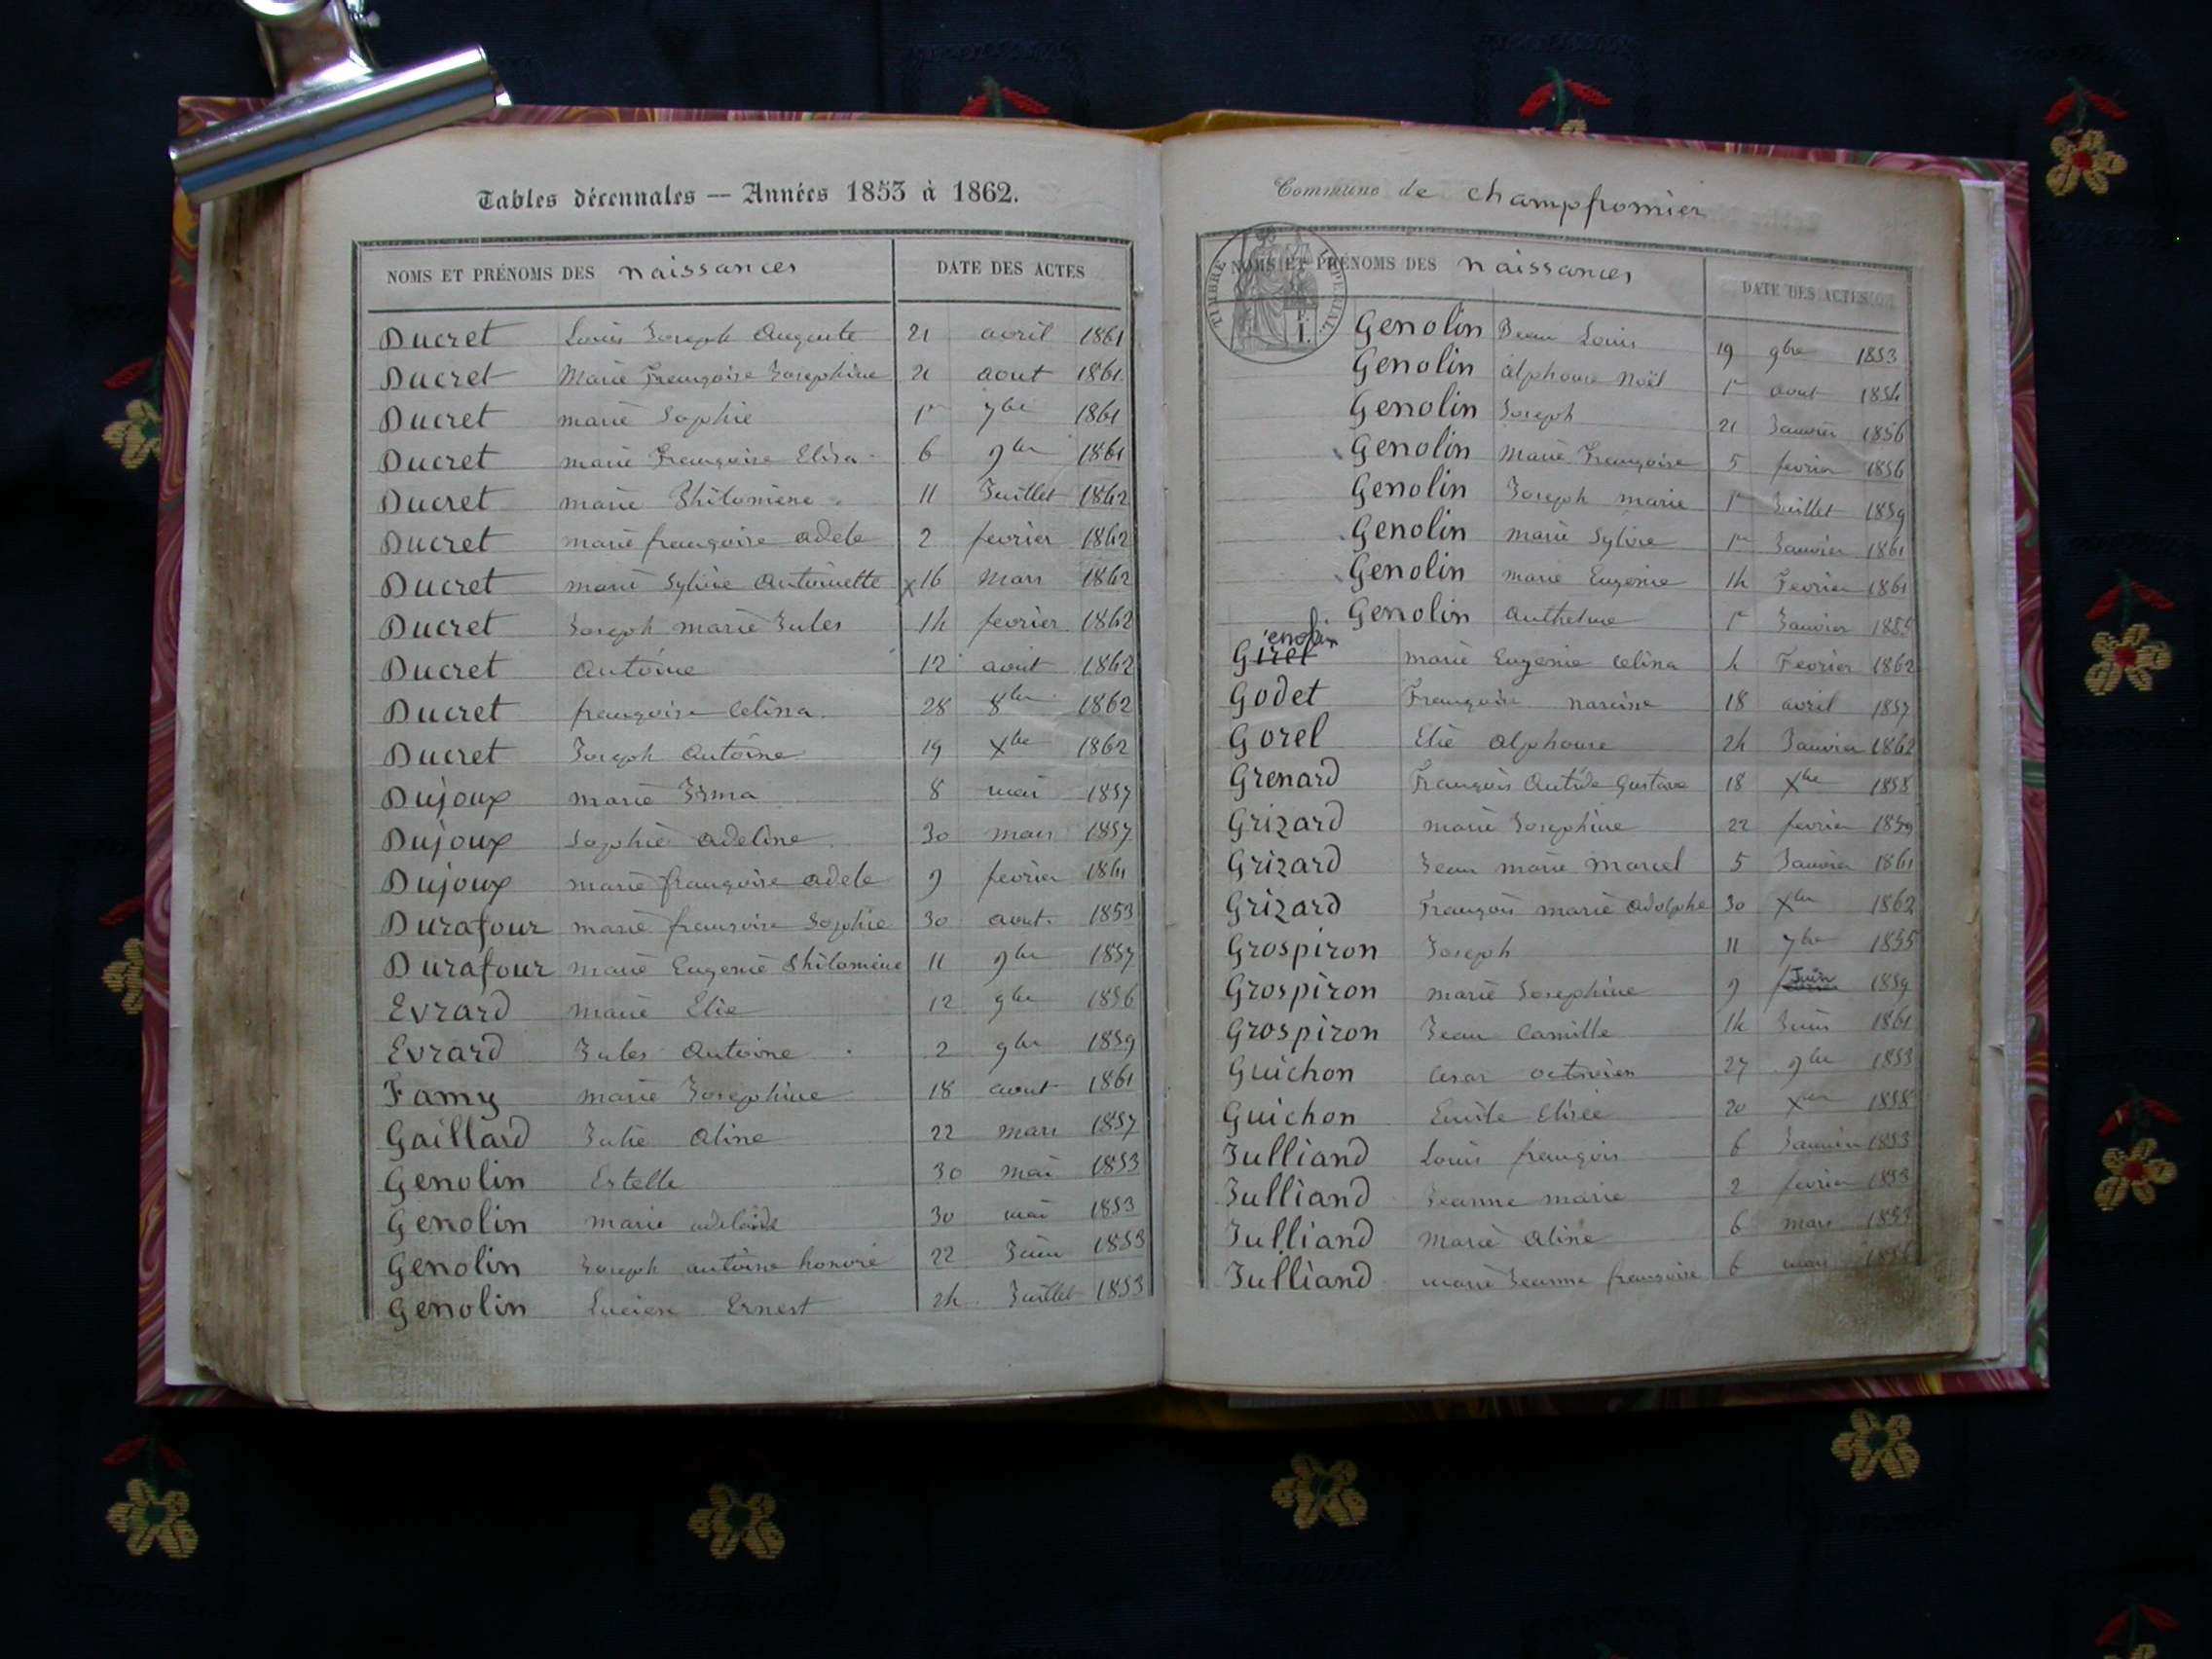 Tables décennales — Années 1853 à 1862.
NOMS ET PRÉNOMS DES naissances DATE DES ACTES
Ducret Louis Joseph Auguste 21 avril 1861
Ducret Marie Françoise Josephine 21 aout 1861
Ducret marie Sophie 1r 7bre 1861
Ducret marie Françoise Elisa 6 9bre 1861
Ducret marie Philomène 11 Juillet 1862
Ducret marie françoise adele 2 fevrier 1862
Ducret marie Sylvie Antoinette x 16 Mars 1862
Ducret Joseph marie Jules 14 fevrier 1862
Ducret Antoine 12 aout 1862
Ducret françoise Celina 28 8bre 1862
Ducret Joseph Antoine 19 Xbre 1862
Dujoux marie Irma 8 mai 1857
Dujoux Sophie Adeline 30 mars 1857
Dujoux marie françoise adele 9 fevrier 1861
Durafour marie françoise Sophie 30 aout 1853
Durafour marie Eugenie Philomène 11 9bre 1857
Evrard marie Elie 12 9bre 1856
Evrard Jules Antoine 2 9bre 1859
Famy marie Josephine 18 aout 1861
Gaillard Julie Aline 22 mars 1857
Genolin Estelle 30 mai 1853
Genolin marie adelaide 30 mai 1853
Genolin Joseph antoine honoré 22 Juin 1853
Genolin Lucien Ernest 24 Juillet 1853
Commune de Champfromier
TIMBRE IMPERIAL
NOMS ET PRÉNOMS DES naissances DATE DES ACTES
Genolin Louis 19 9bre 1853
Genolin alphonse Noël 1r aout 1854
Genolin Joseph 21 Janvier 1856
Genolin Marie Françoise 5 fevrier 1856
Genolin Joseph marie 1r Juillet 1859
Genolin marie Sylvie 1r Janvier 1861
Genolin marie Eugenie 14 Fevrier 1861
Genolin Anthelme 1r Janvier 1855
Girel enolin marie Eugenie Celina 4 Fevrier 1862
Godet Françoise narcise 18 avril 1857
Gorel Elie Alphonse 24 Janvier 1862
Grenard François Gustave 18 Xbre 1858
Grizard marie Josephine 22 fevrier 1859
Grizard Jean marie Marcel 5 Janvier 1861
Grizard François marie Adolphe 30 Xbre 1862
Grospiron Joseph 11 7bre 1855
Grospiron marie Josephine 9 Juin 1859
Grospiron Jean Camille 14 Juin 1861
Guichon Cesar octavien 27 9bre 1853
Guichon Emile Elisée 20 Xbre 1858
Julliand Louis françois 6 Janvier 1853
Julliand Jeanne marie 2 fevrier 1853
Julliand Marie Aline 6 mars 1853
Julliand marie Jeanne françoise 6